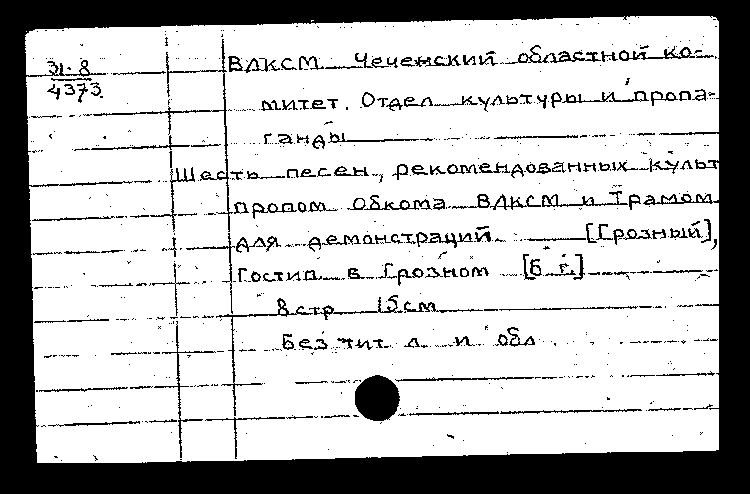 31-8
4373
ВЛКСМ Чеченский областной ко-
митет. Отдел культуры и пропа-
ганды
Шесть песен, рекомендованных культ
пропом Обкома ВЛКСМ и Трамом
для демонстраций [Грозный],
Гостип. в Грозном [б г.]
8 стр 15 см
Без тит л. и обл.